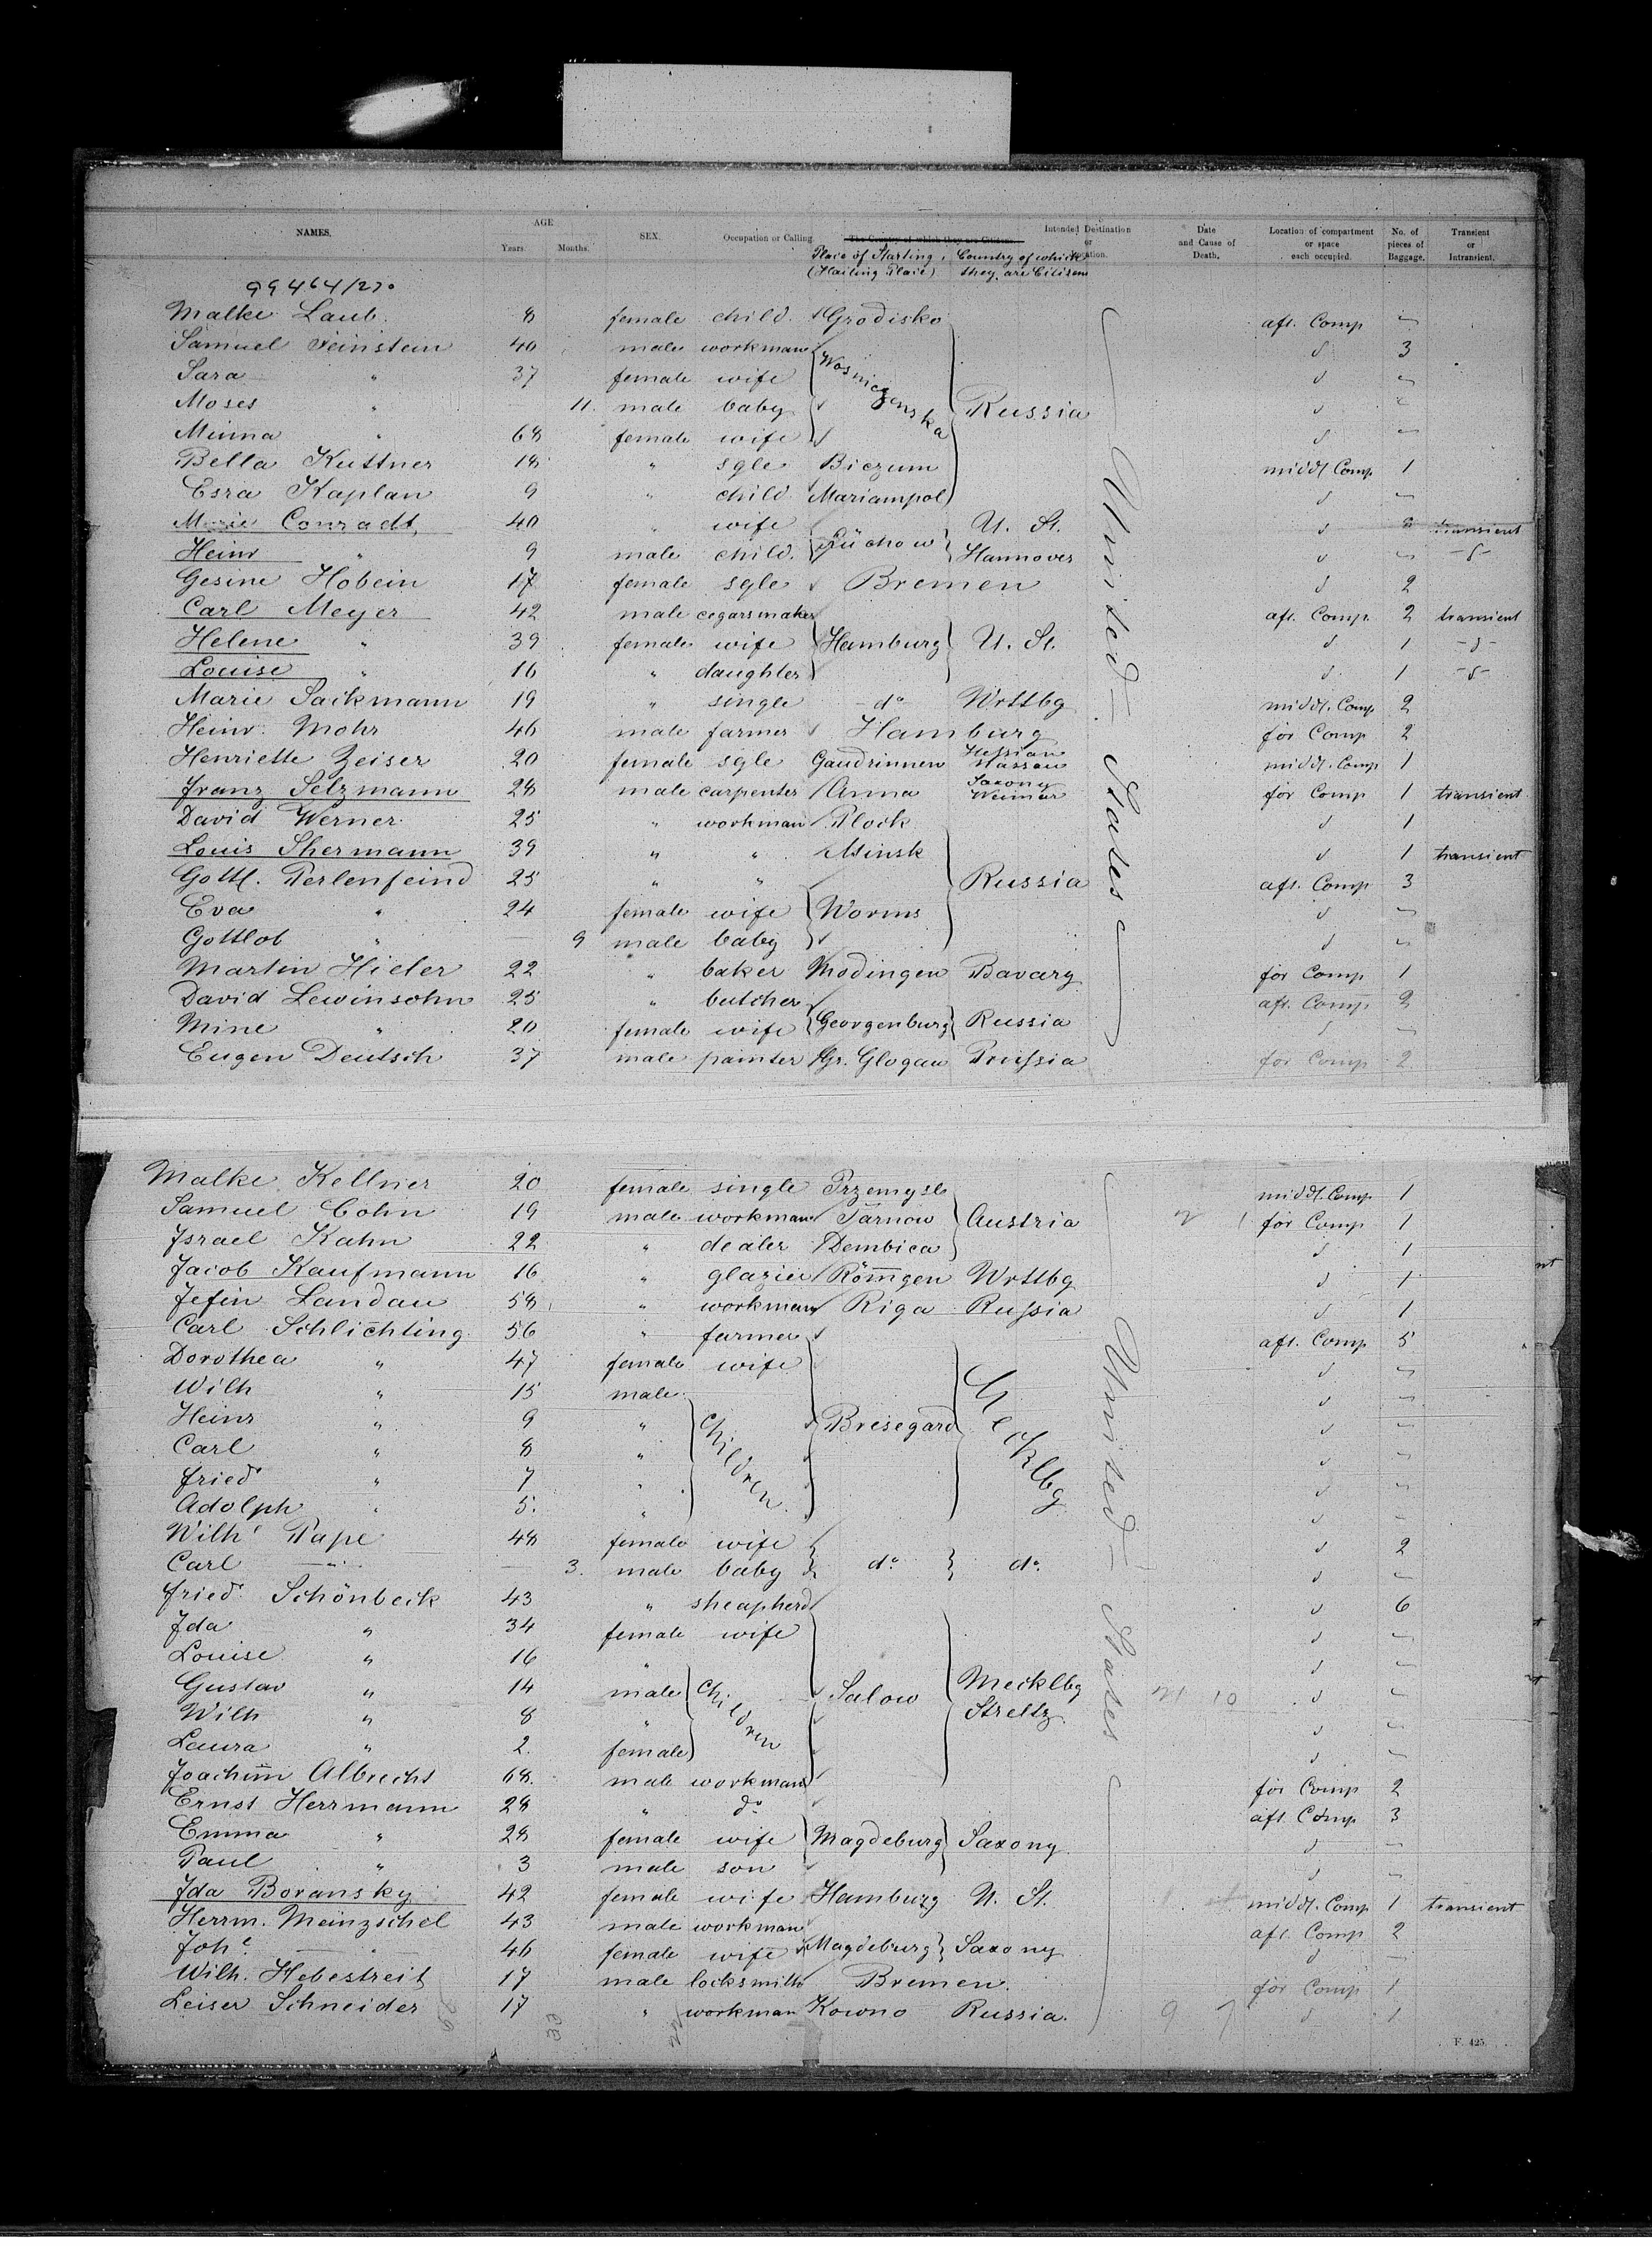 NAMES. AGE Years. Months. SEX. Occupation or Calling. The Country of which they are Citizens. Intended Destination or Location. Date and Cause of Death. Location of compartment or space each occupied. No. of pieces of Baggage. Transient or Intransient.
Place of Starting, Country of which
(Hailing Place) they are Citizens
99464/270
Malke Laub. 8 female child. Grodisko aft. Comp "
Samuel Feinstein 40 male workman d 3
Sara " 37 female wife d "
Moses " 11. male baby Russia d "
Minna " 68 female wife d "
Bella Kuttner 18 " sgle Biezum middl. Comp 1
Esra Kaplan 9 " child Mariampol d "
Marie Conradt, 40 " wife Lüchow U. St. d transient
Heinr " 9 male child. Hannover d " -d-
Gesine Hobein 17 female sgle Bremen d 2
Carl Meyer 42 male cegarsmaker aft. Comp. 2 transient
Helene " 39 female wife Hamburg U. St. d 1 -d-
Louise " 16 " daughter d 1 -d-
Marie Sackmann 19 " single do Wrttbg middl. Comp 2
Heinr. Mohr 46 male farmer Hamburg for Comp 2
Henriette Zeiser 20 female sgle Gaudrinnen Hessian Nassau middl. Comp 1
Franz Selzmann 28 male carpenter Anna Saxony Weimar for Comp 1 transient
David Werner 25 " workman Plock d 1
Louis Shermann 39 " " Minsk d 1 transient
Gottl. Perlenfeind 25 " " Russia aft. Comp 3
Eva " 24 female wife Worms d "
Gottlob " 9 male baby d "
Martin Hieler 22 " baker Modingen Bavary for Comp 1
David Lewinsohn 25 " butcher aft. Comp 2
Mine " 20 female wife Georgenburg Russia d "
Eugen Deutsch 37 male painter Gr. Glogau Prussia for Comp 2
United States
Malke Kellner 20 female single Przemysl middl. Comp 1
Samuel Cohn 19 male workman Tarnow Austria for Comp 1
Israel Kahn 22 " dealer Dembica d 1
Jacob Kaufmann 16 " glazier Wrttbg d 1
Jefin Landau 58 " workman Riga Russia d 1
Carl Schlichting 56 " farmer aft. Comp 5
Dorothea " 47 female wife d "
Wilh " 15 male d "
Heinr " 9 " Children Bresegard Mecklbg d "
Carl " 8 " d "
Fried " 7 " d "
Adolph " 5. " d "
Wilh Pape 48 female wife d 2
Carl " 3. male baby do do d "
Fried Schönbeck 43 " sheapherd d 6
Ida " 34 female wife d "
Louise " 16 " d "
Gustav " 14 male Children Salow Mecklbg d "
Wilh " 8 " Streltz d "
Laura " 2. female d "
Joachim Albrecht 68. male workman for Comp 2
Ernst Herrmann 28 " do aft Comp 3
Emma " 28 female wife Magdeburg Saxony d "
Paul " 3 male son d "
Ida Boransky 42 female wife Hamburg U. St. middl. Comp 1 transient
Herrm. Meinzschel 43 male workman aft. Comp 2
Johe " 46 female wife Magdeburg Saxony d
Wilh. Hebestreit 17 male locksmith Bremen. for Comp 1
Leiser Schneider 17 " workman Kowno Russia. d 1
United States
29 33
9 7
F. 425.